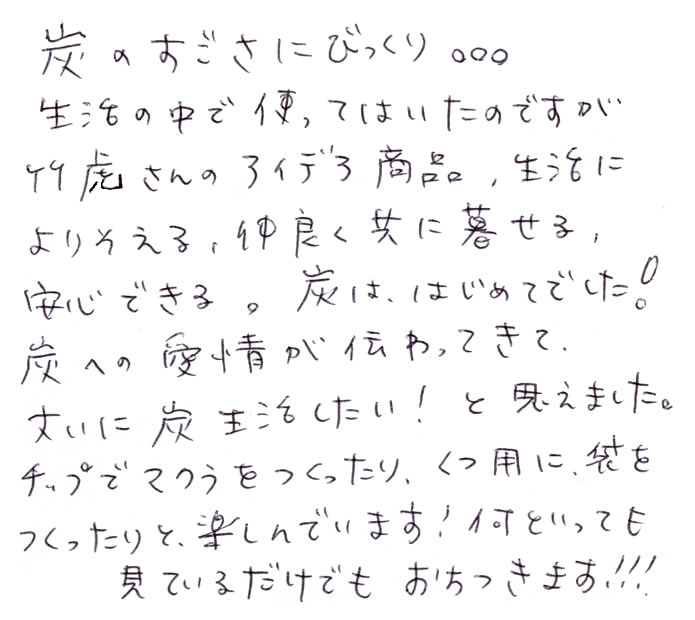 炭のすごさにびっくり。。。
生活の中で使ってはいたのですが
竹虎さんのアイデア商品、生活に
よりそえる、仲良く共に暮せる、
安心できる。炭は、はじめてでした!
炭への愛情が伝わってきて、
大いに炭生活したい!と思えました。
チップでマクラをつくったり、くつ用に、袋を
つくったりと、楽しんでいます!何といっても
見ているだけでもおちつきます!!!